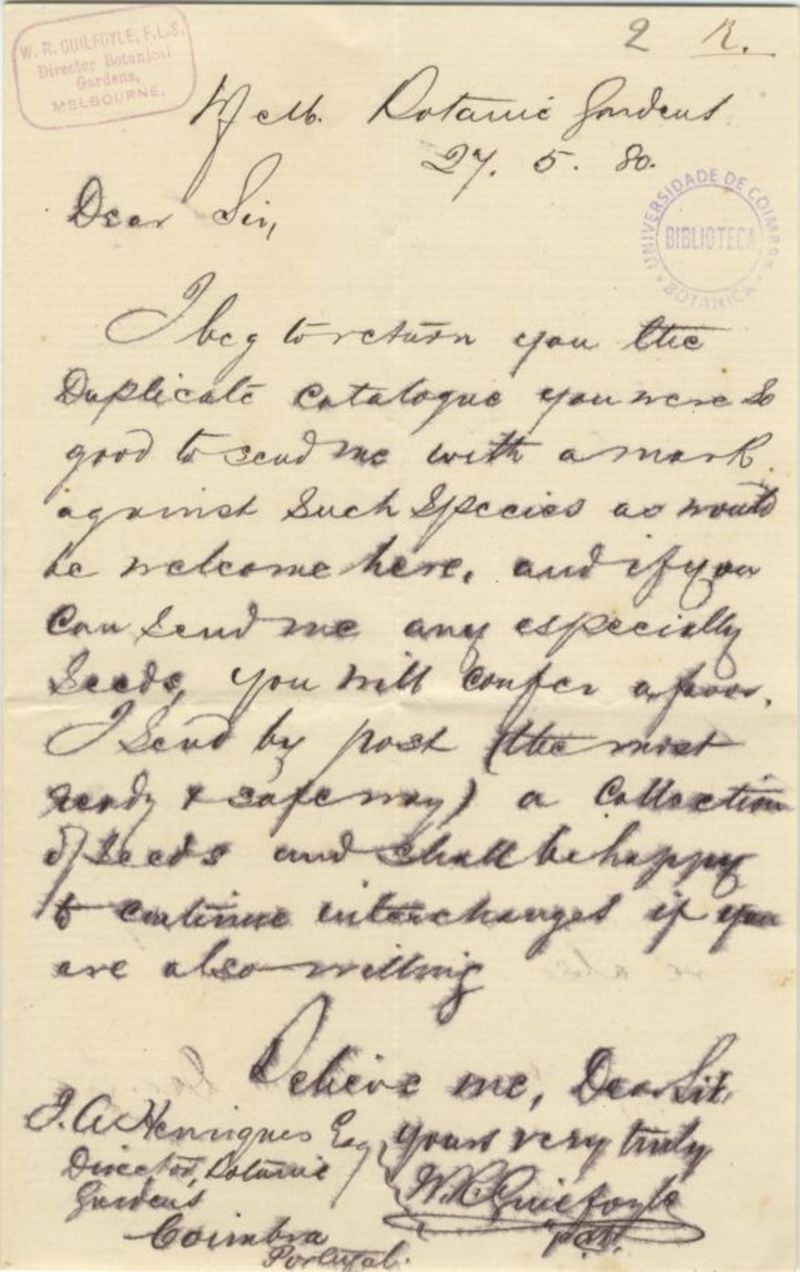 W. R. GUILFOYLE, F.L.S.
Director Botanical
Gardens,
MELBOURNE.
2 R.
Melb. Botanic Gardens
27. 5. 80.
UNIVERSIDADE DE COIMBRA
BIBLIOTECA
BOTANICA
Dear Sir,
I beg to return you the
Duplicate Catalogue you were so
good to send me with a mark
against such species as would
be welcome here, and if you
can send me any especially
seeds, you will confer a favor.
I send by post (the most
ready & safe way) a collection
of seeds and shall be happy
to continue interchanges if you
are also willing
Believe me, Dear Sir,
yours very truly
W. R. Guilfoyle
J. A. Henriques Esq
Director, Botanic
Gardens
Coimbra
Portugal.